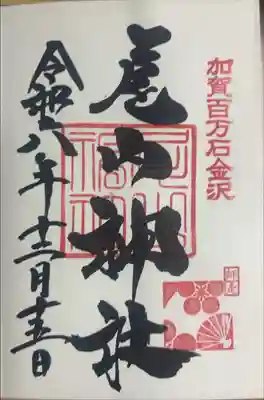 加賀百万石金沢
尾山神社
令和六年十二月十五日